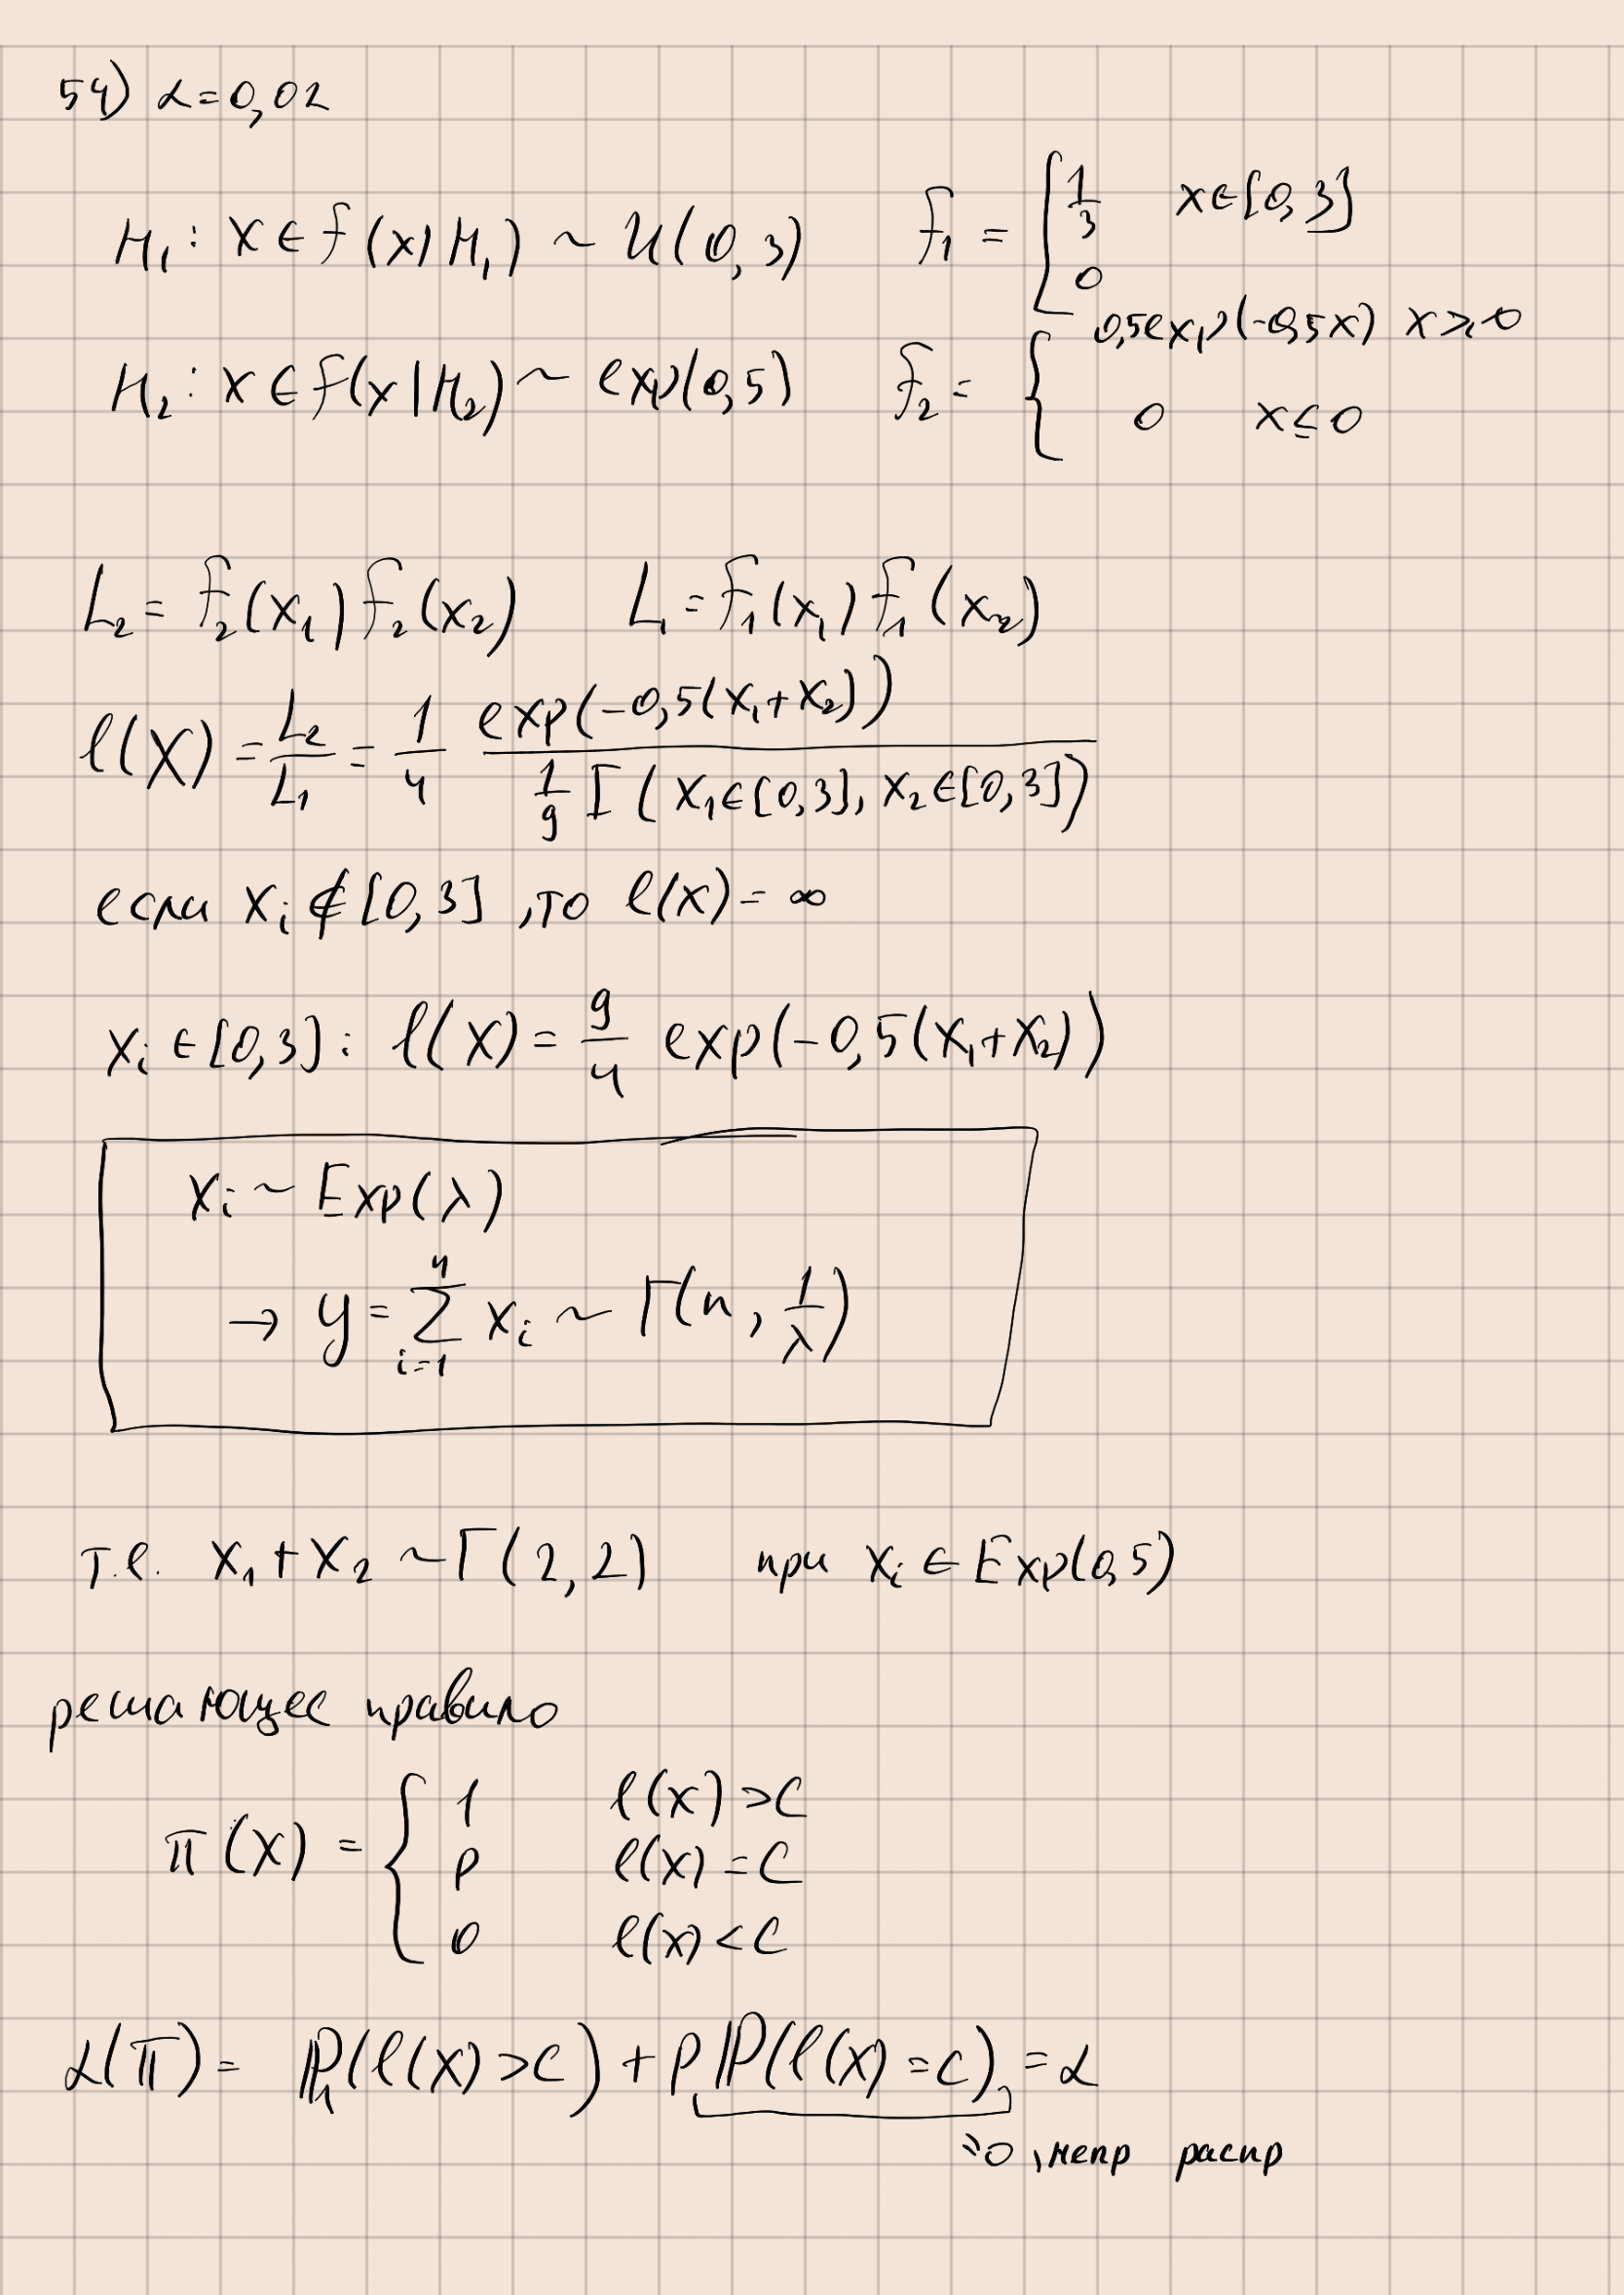 54) α=0,02
H₁: x ∈ f(x|H₁) ~ U(0, 3) f₁ = { 1/3 x∈[0,3]
0
H₂: x ∈ f(x|H₂) ~ exp(0,5) f₂ = { 0,5exp(-0,5x) x⩾0
0 x≤0
L₂ = f₂(x₁) f₂(x₂) L₁ = f₁(x₁) f₁(x₂)
l(X) = L₂/L₁ = 1/4 exp(-0,5(x₁+x₂)) / (1/9 I(x₁∈[0,3], x₂∈[0,3]))
если xᵢ ∉ [0,3], то l(x) = ∞
xᵢ ∈ [0,3]: l(X) = 9/4 exp(-0,5(x₁+x₂))
xᵢ ~ Exp(λ)
→ y = Σᵢ₌₁ⁿ xᵢ ~ Γ(n, 1/λ)
т.е. x₁+x₂ ~ Γ(2,2) при xᵢ ∈ Exp(0,5)
решающее правило
π(X) = { 1 l(x) > C
p l(x) = C
0 l(x) < C
α(π) = ℙ₁(l(X) > C) + p ℙ(l(X) = C) = α
=0, непр распр